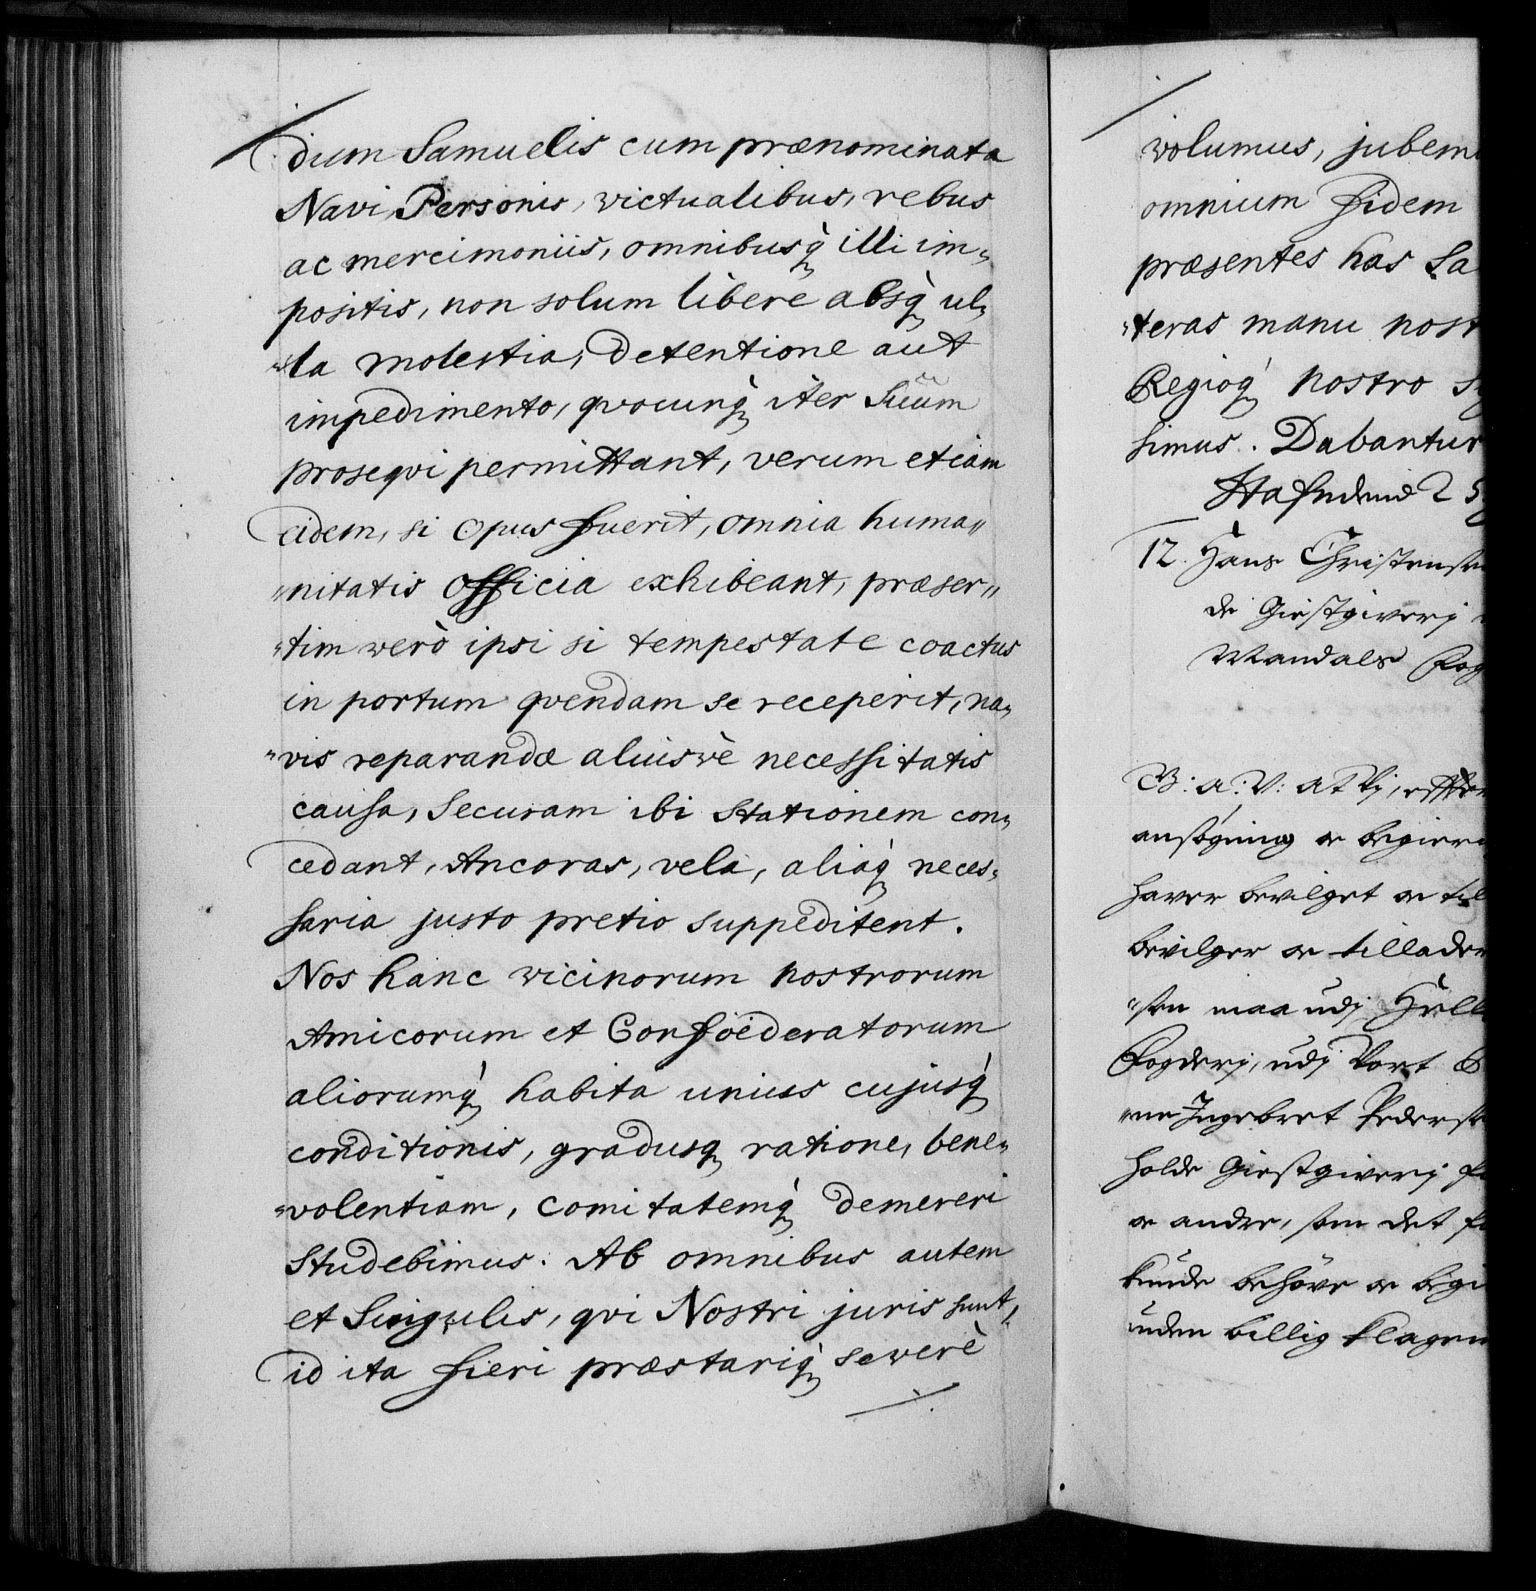 dum Samuelis cum prænominata
Navi, Personis, victualibus, rebus
ac mercimoniis, omnibusq̀ illi im„
positis, non solum liberè absq̀ ul„
„la molestia, detentione aut
impedimento, qvocunq̀ iter suum
proseqvi permittant, verum etiam
eidem, si opus fuerit, omnia huma„
„nitatis officia exhibeant, præser„
„tim verò ipsi si tempestate coactus
in portum qvendam se receperit, na„
„vis reparandæ aliusvè necessitatis
causa, securam ibi stationem con„
cedant, Ancoras, vela, aliaq̀ neces„
saria justo pretio suppeditent.
Nos hanc vicinorum nostrorum
Amicorum et Confoederatorum
aliorumq̀ habita unius cujusq̀
conditionis, gradusq ratione, bene„
„volentiam, comitatemq̀ demereri
studebimus. Ab omnibus autem
et singulis, qvi Nostri juris sunt,
id ita fieri præstariq̀ severè
volumus, jubem
omnium fidem
præsentes has Sa
„teras manu nost
Regioq̀ nostro
simus. Dabantur
Hafniæ d 2
12. Hans Christens
de Giestgiverj
Mandals Fog
G: a: V: at Vj, efter
ansøgning oc begier
hafver bevilget oc til
bevilger oc tillader
„sen maa udj
Fogderj, udj Vort
„me Ingebret Peders
holde Giestgiverj f
oc andre, som det
kunde behøve oc begi
uden billig klage